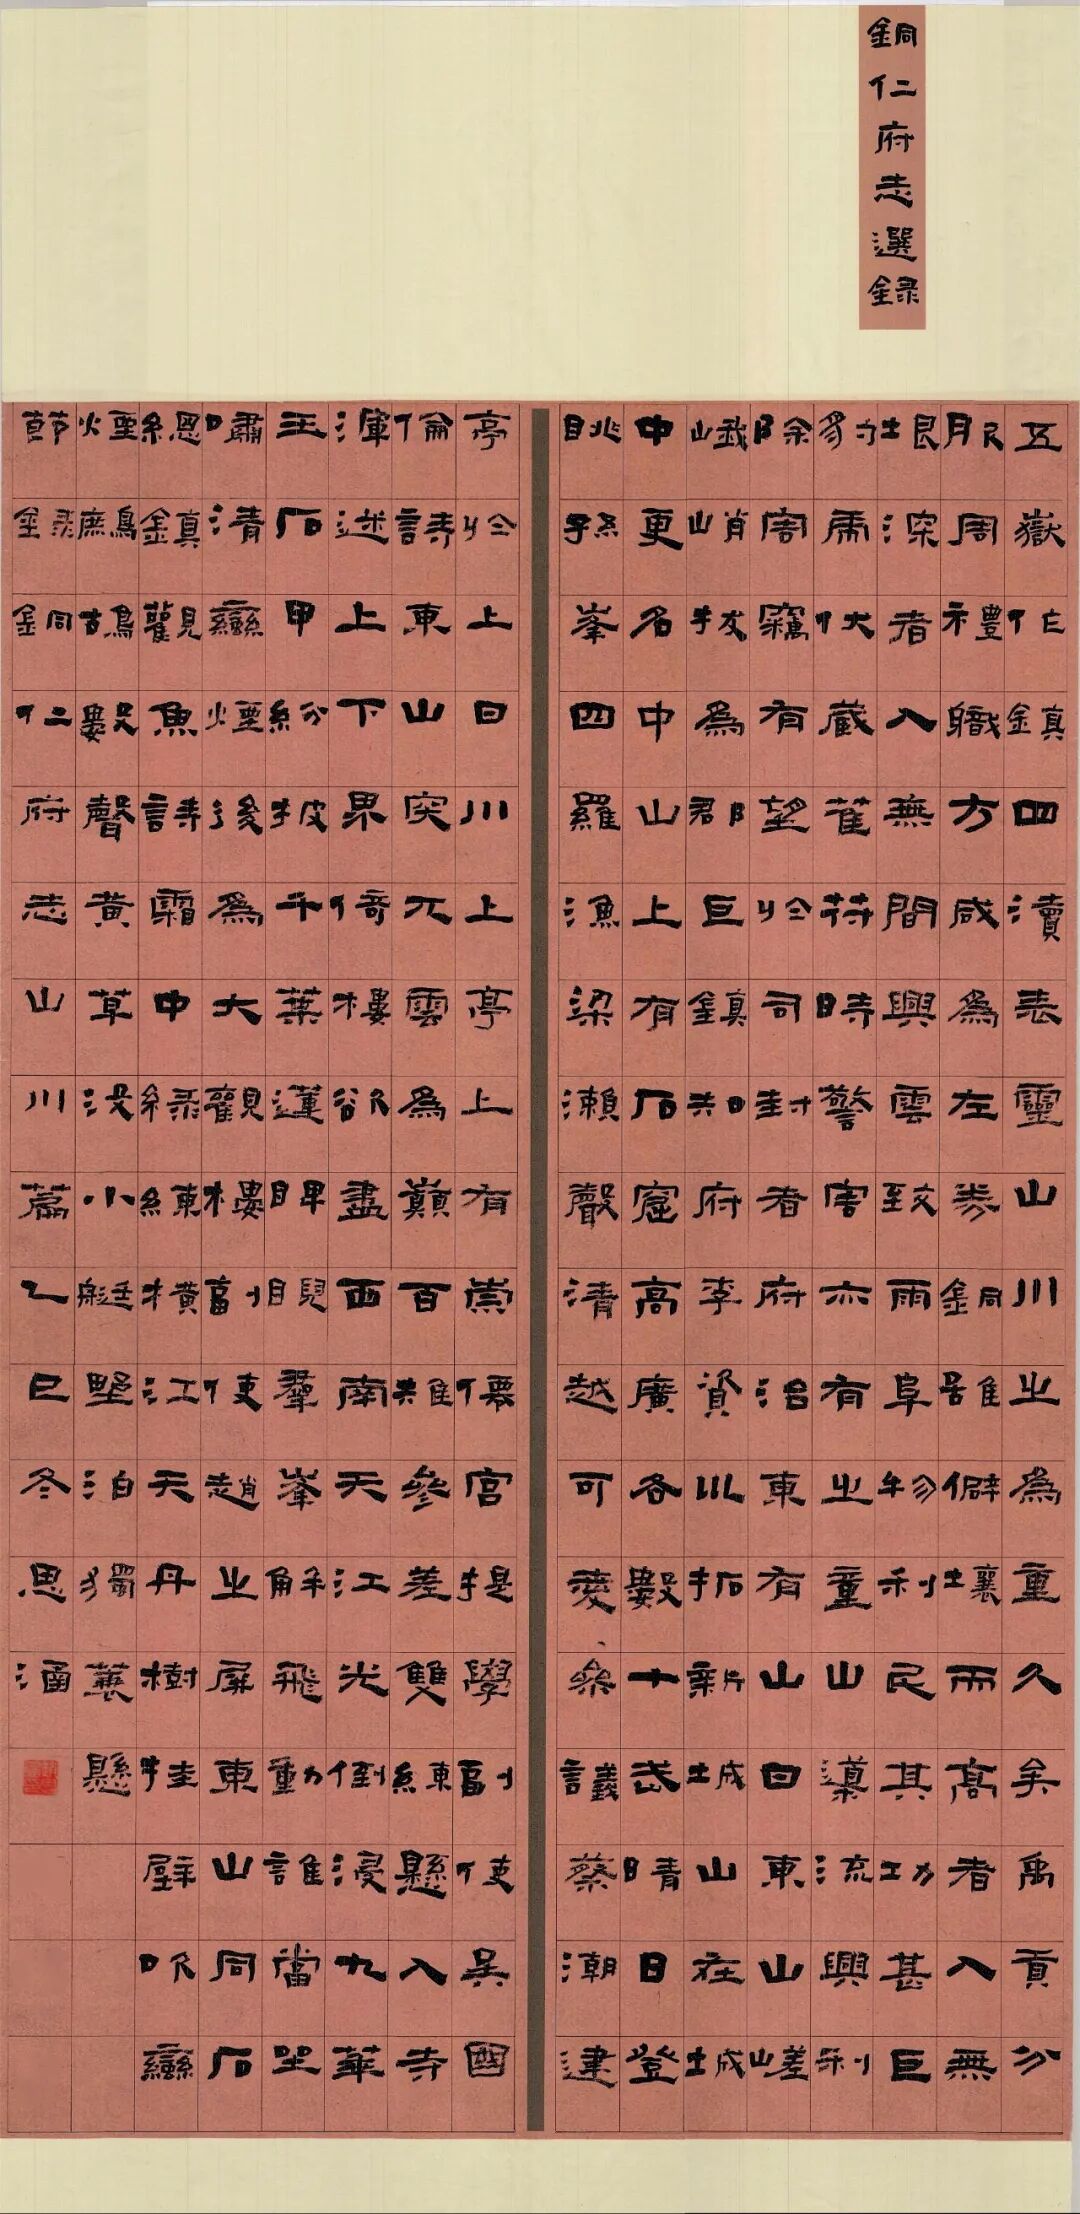 銅仁府志選錄
五嶽作鎮四瀆表靈山川之為重久矣禹貢分
服周禮職方咸為左券銅雖僻壤而高者入無
垠深者入無間興雲致雨阜物利民其功甚巨
豹虎伏藏萑苻時警害亦有之童山流興利
除害竊有望於司封者府治東有山曰東山嵯
峨峭拔為郡巨鎮知府李資以拓新城山在城
中更名中山上有石窟高廣各數十武晴日登
眺孫峯四羅漁梁瀨聲清越可愛參議蔡潮建
亭於上曰川上亭上有崇僊宮提學副使吳國
倫詩東山突兀雲為巔百雉參差雙練懸入寺
渾迷上下界倚樓欲盡西南天江光倒浸九華
玉石甲紛披千葉蓮睥睨群峯解飛動誰當坐
嘯清巒煙後為大觀樓副使趙之屏東山同石
總鎮觀魚詩霜中綠練橫江天丹樹挂壁巒
煙鷓鴣數聲黃草沒小艇野泊獨蓑懸
節錄銅仁府志山川篇乙巳冬思涌